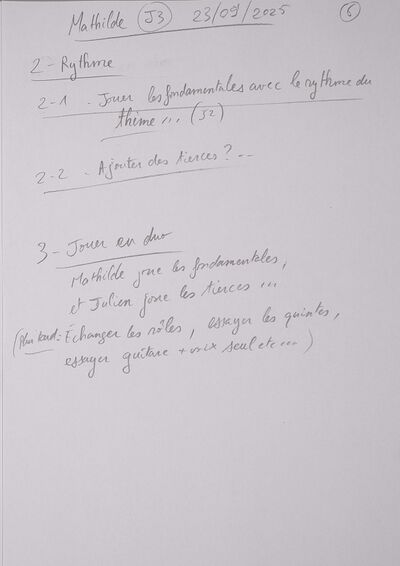 Mathilde J3 23/09/2025 6
2 - Rythme
2-1 - Jouer les fondamentales avec le rythme du
thème ... (J2)
2-2 - Ajouter des tierces ? ...
3 - Jouer en duo
Mathilde joue les fondamentales,
et Julien joue les tierces ...
(Plus tard : Échanger les rôles, essayer les quintes,
essayer guitare + voix seul etc ...)